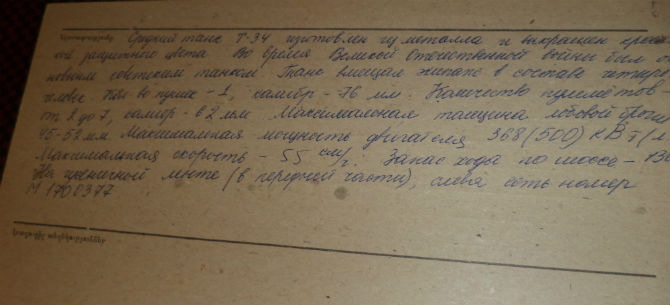 Նկարագրությունը Средний танк Т-34 изготовлен из металла и выкрашен крас-
кой защитного цвета. Во время Великой Отечественной войны был ос
новным советским танком. Танк вмещал экипаж в составе четырех
человек. Кол-во пушек - 1, калибр - 76 мм. Количество пулеметов -
от 2 до 7, калибр -
Максимальная толщина лобовой брони
45-52 мм Максимальная мощность двигателя 368 (500) кВт (л.
Максимальная скорость - 55 км/ Запас хода по шоссе -
На гусеничной ленте (в передней части), слева есть номер
М 1700377